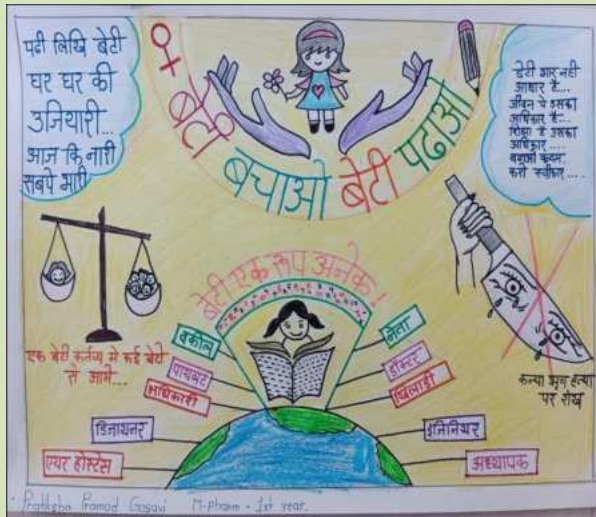 पढी लिखि बेटी
घर घर की
उजियारी...
आज कि नारी
सबपे भारी
♀ बेटी बचाओ बेटी पढाओ
बेटी भार नही
आधार है...
जीवन पे उसका
अधिकार है...
शिक्षा है उसका
अधिकार....
करो स्वीकार....
एक बेटी कर्तव्य मे कई बेटो
से आगे...
बेटी एक रुप अनेक!
वकील
पायलट
अधिकारी
डिजायनर
एयर होस्टेस
नेता
डॉक्टर
खिलाडी
इंजिनियर
अध्यापक
कन्या भ्रूण हत्या
पर रोख
Pratiksha Pramod Gosavi M-Pharm - 1st year.